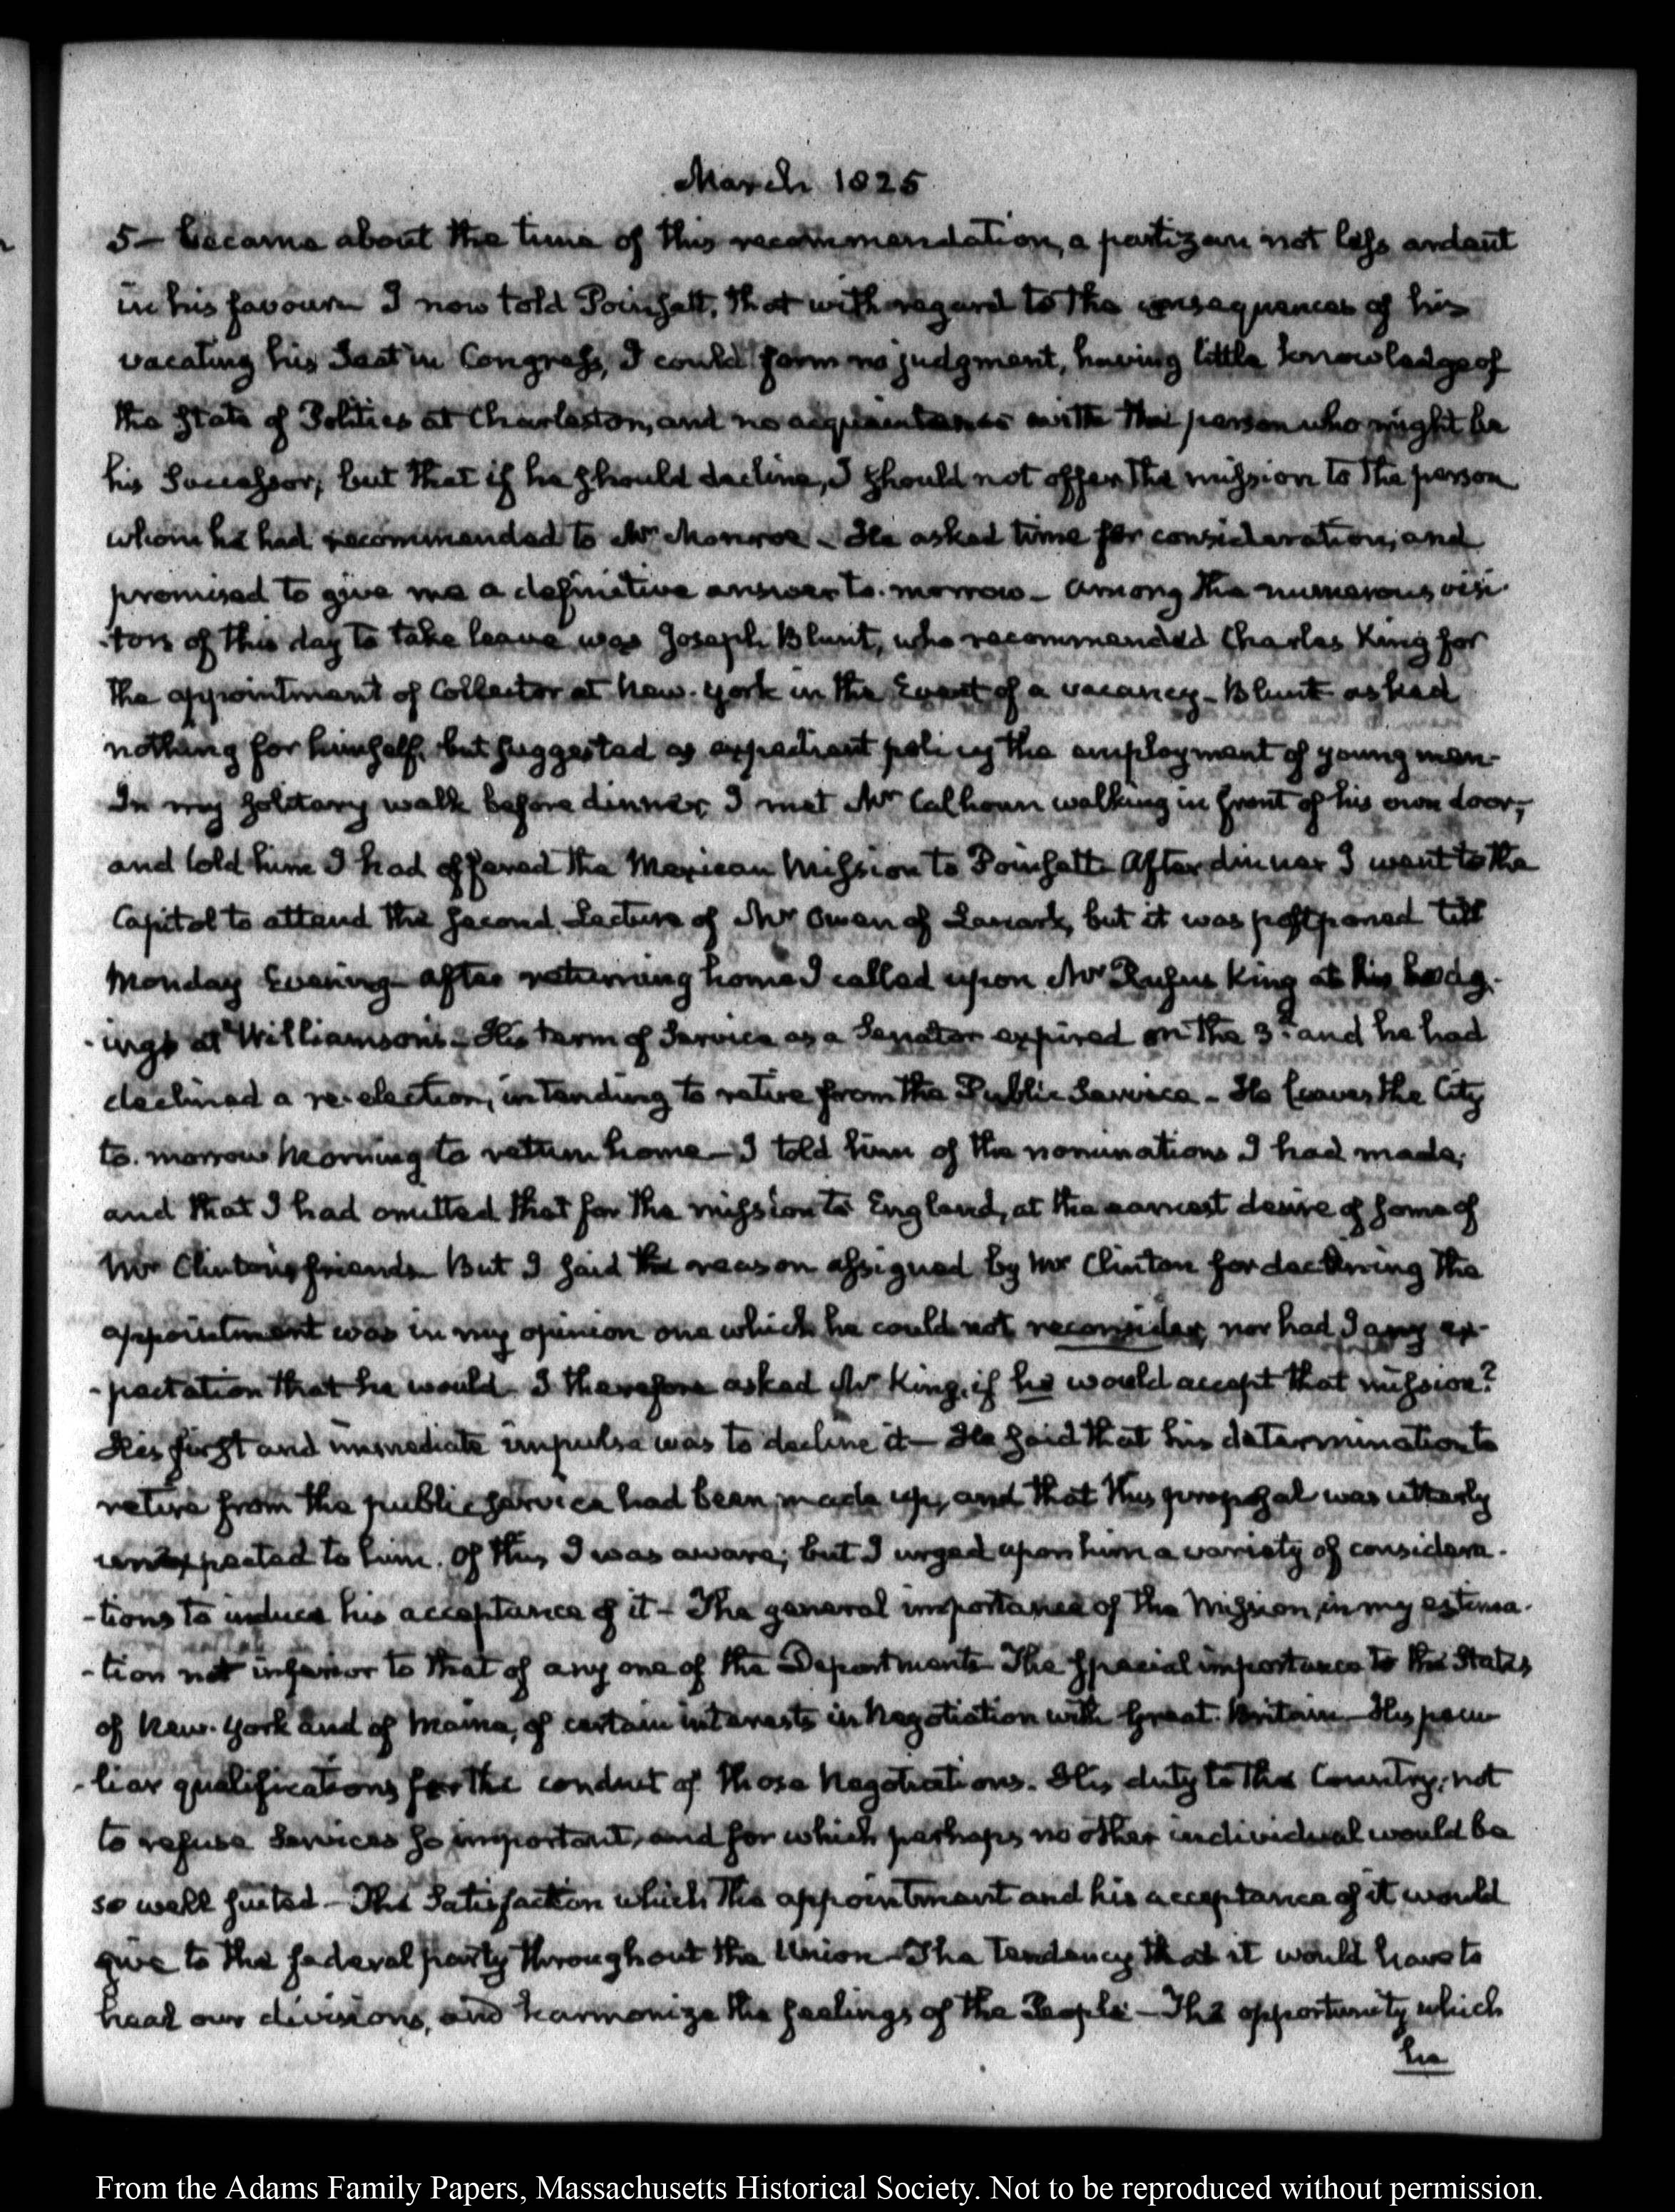 March 1825
5— became about the time of this recommendation, a partizan not less ardent
in his favour— I now told Poinsett, that with regard to the consequences of his
vacating his Seat in Congress, I could form no judgment, having little knowledge of
the State of Politics at Charleston, and no acquaintance with the person who might be
his Successor; but that if he should decline, I should not offer the mission to the person
whom he had recommended to Mr Monroe— He asked time for consideration, and
promised to give me a definitive answer to-morrow— Among the numerous visi-
-tors of this day to take leave was Joseph Blunt, who recommended Charles King for
the appointment of Collector at New-York in the Event of a vacancy— Blunt asked
nothing for himself, but suggested as expedient policy the employment of young men—
In my solitary walk before dinner, I met Mr Calhoun walking in front of his own door,
and told him I had offered the Mexican Mission to Poinsett— After dinner I went to the
Capitol to attend the second Lecture of Mr Owen of Lanark, but it was postponed till
Monday Evening— After returning home I called upon Mr Rufus King at his lodg-
-ings at Williamson's— His term of Service as a Senator expired on the 3d. and he had
declined a re-election, intending to retire from the Public Service— He leaves the City
to-morrow Morning to return home— I told him of the nominations I had made,
and that I had omitted that for the mission to England, at the earnest desire of some of
Mr Clinton's friends— But I said the reason assigned by Mr Clinton for declining the
appointment was in my opinion one which he could not reconsider, nor had I any ex-
-pectation that he would— I therefore asked Mr King, if he would accept that mission?
His first and immediate impulse was to decline it— He said that his determination to
retire from the public service had been made up, and that this proposal was utterly
unexpected to him. Of this I was aware; but I urged upon him a variety of considera-
-tions to induce his acceptance of it— The general importance of the Mission, in my estima-
-tion not inferior to that of any one of the Departments— The special importance to the States
of New-York and of Maine, of certain interests in Negotiation with Great-Britain— His pecu-
-liar qualifications for the conduct of those Negotiations. His duty to the Country, not
to refuse Services so important, and for which perhaps no other individual would be
so well suited— The Satisfaction which the appointment and his acceptance of it would
give to the federal party throughout the Union— The tendency that it would have to
heal our divisions, and harmonize the feelings of the People— The opportunity which
he
From the Adams Family Papers, Massachusetts Historical Society. Not to be reproduced without permission.